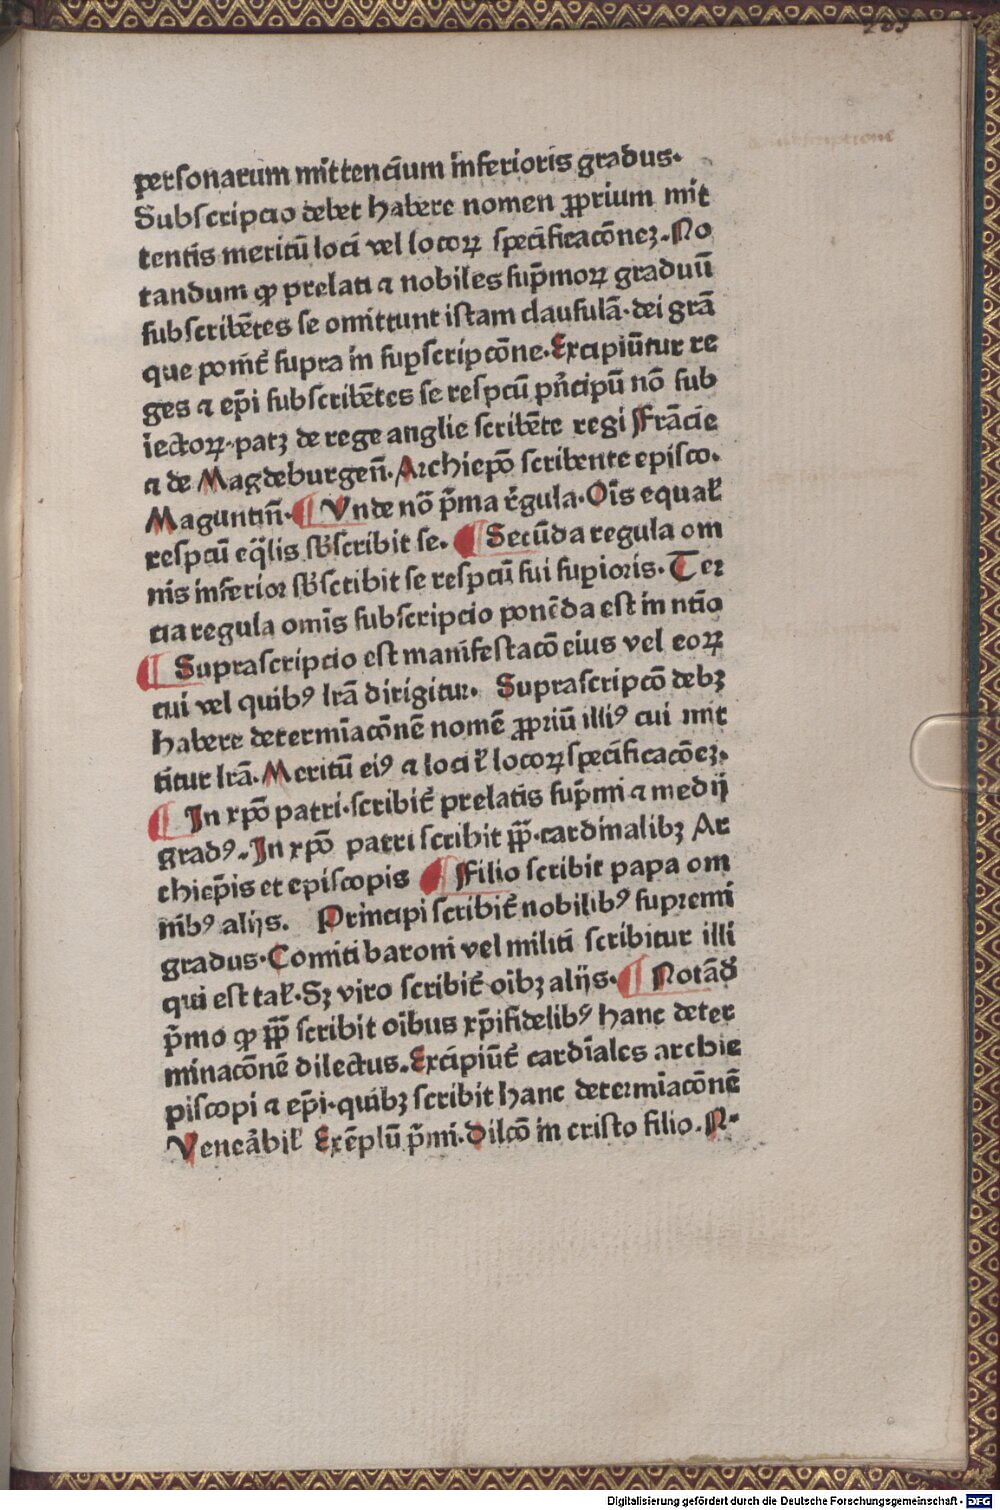 personarum mittenciū inferioris gradus.
Subscripcio debet habere nomen ꝓprium mit
tentis meritū loci vel locoꝝ specificacōneȝ. No
tandum ꝙ prelati ⁊ nobiles sup̄moꝝ graduū
subscribētes se omittunt istam clausulā. dei grā
que ponit̄ supra in supscripcōne. Excipiūtur re
ges ⁊ ep̄i subscribētes se respcū pn̄cipū nō sub
iectoꝝ. patȝ de rege anglie scribēte regi Francie
⁊ de Magdeburgen̄. Archiepō scribente episco.
Maguntin̄. ¶ Vnde nō p̄ma rēgula. Oīs equał
respcū eq̄lis sb̄scribit se. ¶ Secūda regula om
nis inferior sb̄scribit se respcū sui supioris. Ter
cia regula omīs subscripcio ponēda est in ntīo
¶ Suprascripcio est manifestacō eius vel eoꝝ
cui vel quibꝰ lrā dirigitur. Suprascripcō debȝ
habere determīacōnē nomē ꝓpriū illiꝰ cui mit
titur lrā. Meritū eiꝰ ⁊ loci ł locoꝝ specificacōeȝ.
¶ In xp̄o patri. scribit̄ prelatis sup̄mi ⁊ medij
gradꝰ. In xp̄o patri scribit pp̄. cardinalibȝ Ar
chiep̄is et episcopis ¶ Filio scribit papa om
nibꝰ alijs. Principi scribit̄ nobilibꝰ supremi
gradus. Comiti baroni vel militi scribitur illi
qui est tał. Sȝ viro scribit̄ oībȝ alijs. ¶ Notād̄
p̄mo ꝙ pp̄ scribit oībus xp̄ifidelibꝰ hanc deter
minacōnē dilectus. Excipiūt̄ cardīales archie
piscopi ⁊ ep̄i. quibȝ scribit hanc determīacōnē
Veneābił Exēplū p̄mi. Dilcō in cristo filio. N.
Digitalisierung gefördert durch die Deutsche Forschungsgemeinschaft - DFG